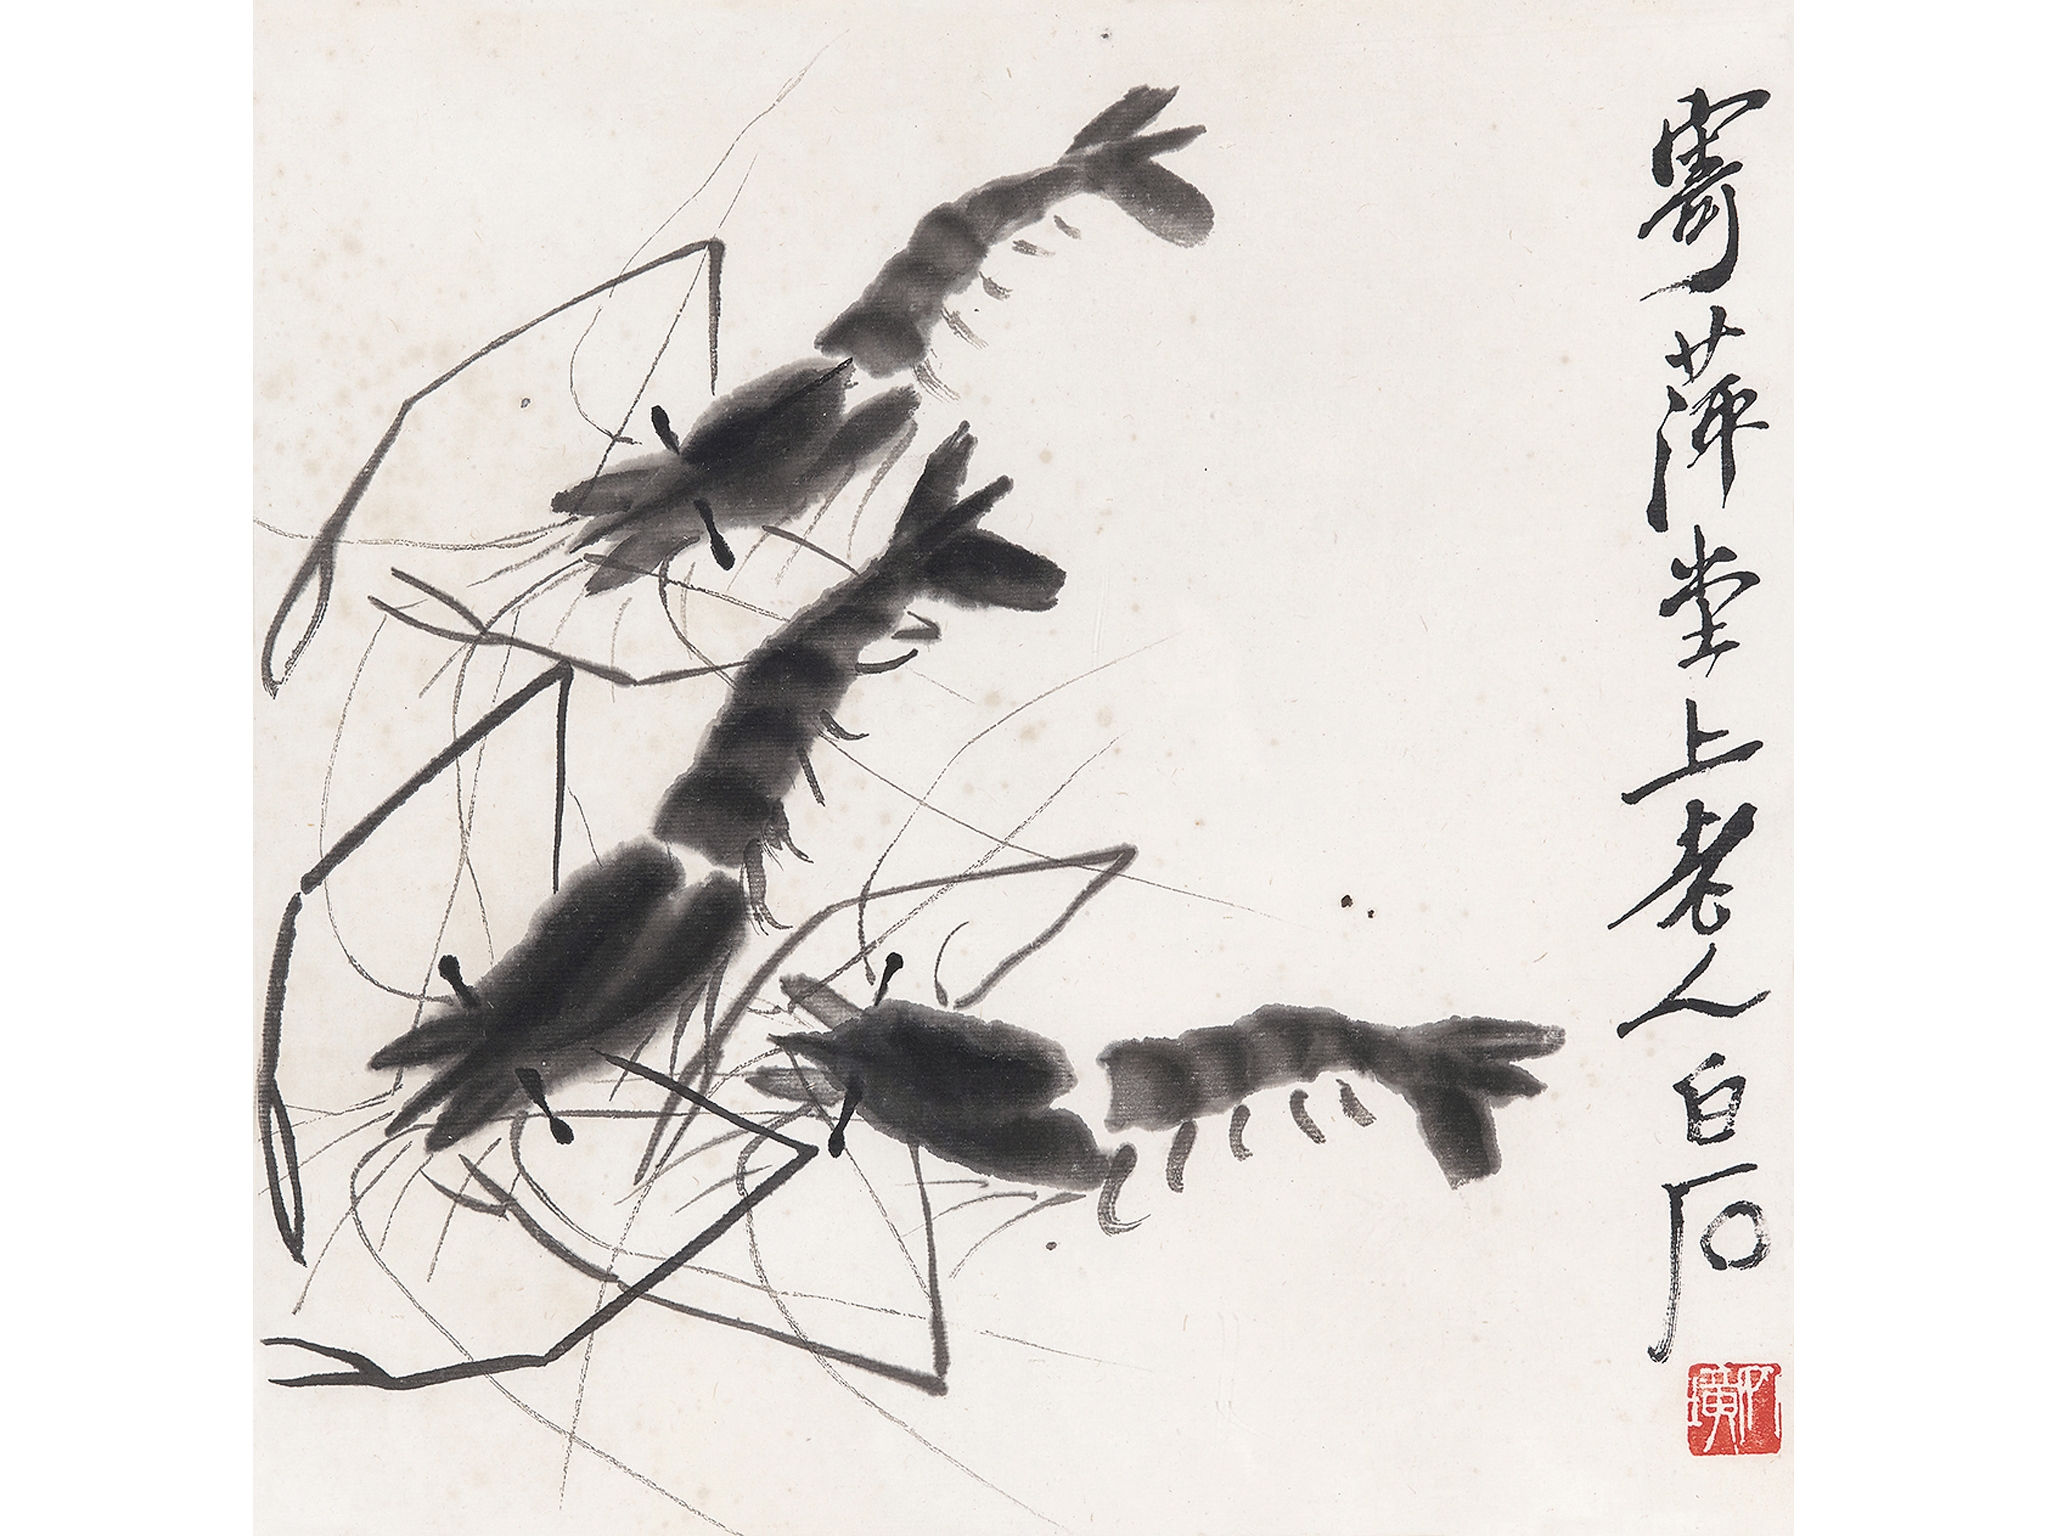 寄萍堂上老人白石
齊璜